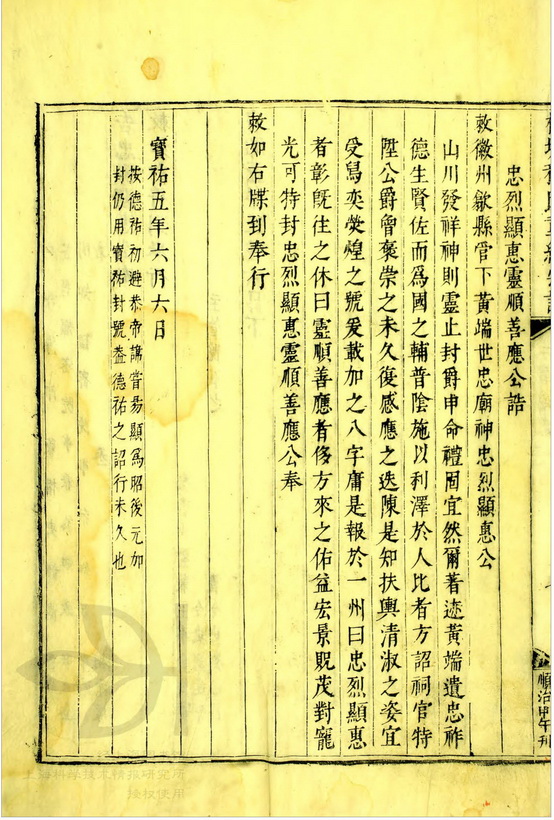 忠烈顯惠靈順善應公誥
敕徽州歙縣管下黃端世忠廟神忠烈顯惠公
山川發祥神則靈止封爵申命禮固宜然爾著迹黃端遺忠祚
德生賢佐而為國之輔普陰施以利澤於人比者方詔祠官特
陞公爵曾褒崇之未久復感應之迭陳是知扶輿清淑之姿宜
受舄奕熒煌之號爰載加之八字庸是報於一州曰忠烈顯惠
者彰既往之休曰靈順善應者侈方來之佑益宏景貺茂對寵
光可特封忠烈顯惠靈順善應公奉
敕如右牒到奉行
寶祐五年六月六日
按德祐初避恭帝諱嘗易顯為昭後元加
封仍用寶祐封號葢德祐之詔行未久也
順治甲午刊
上海科学技术情报研究所
授权使用